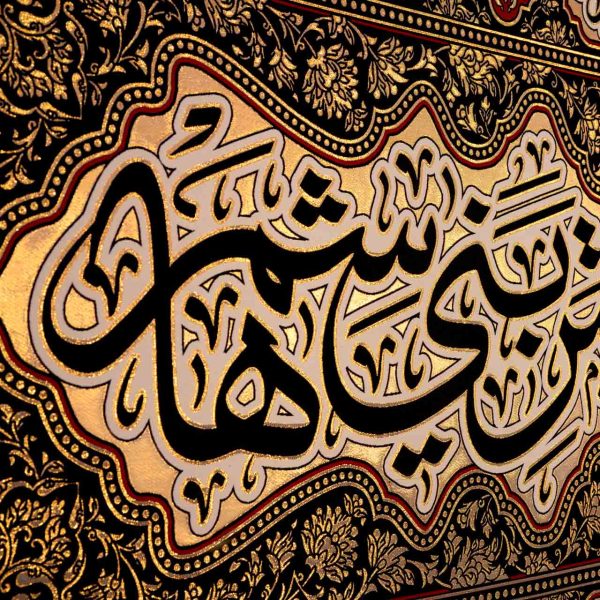 بنی هاشم